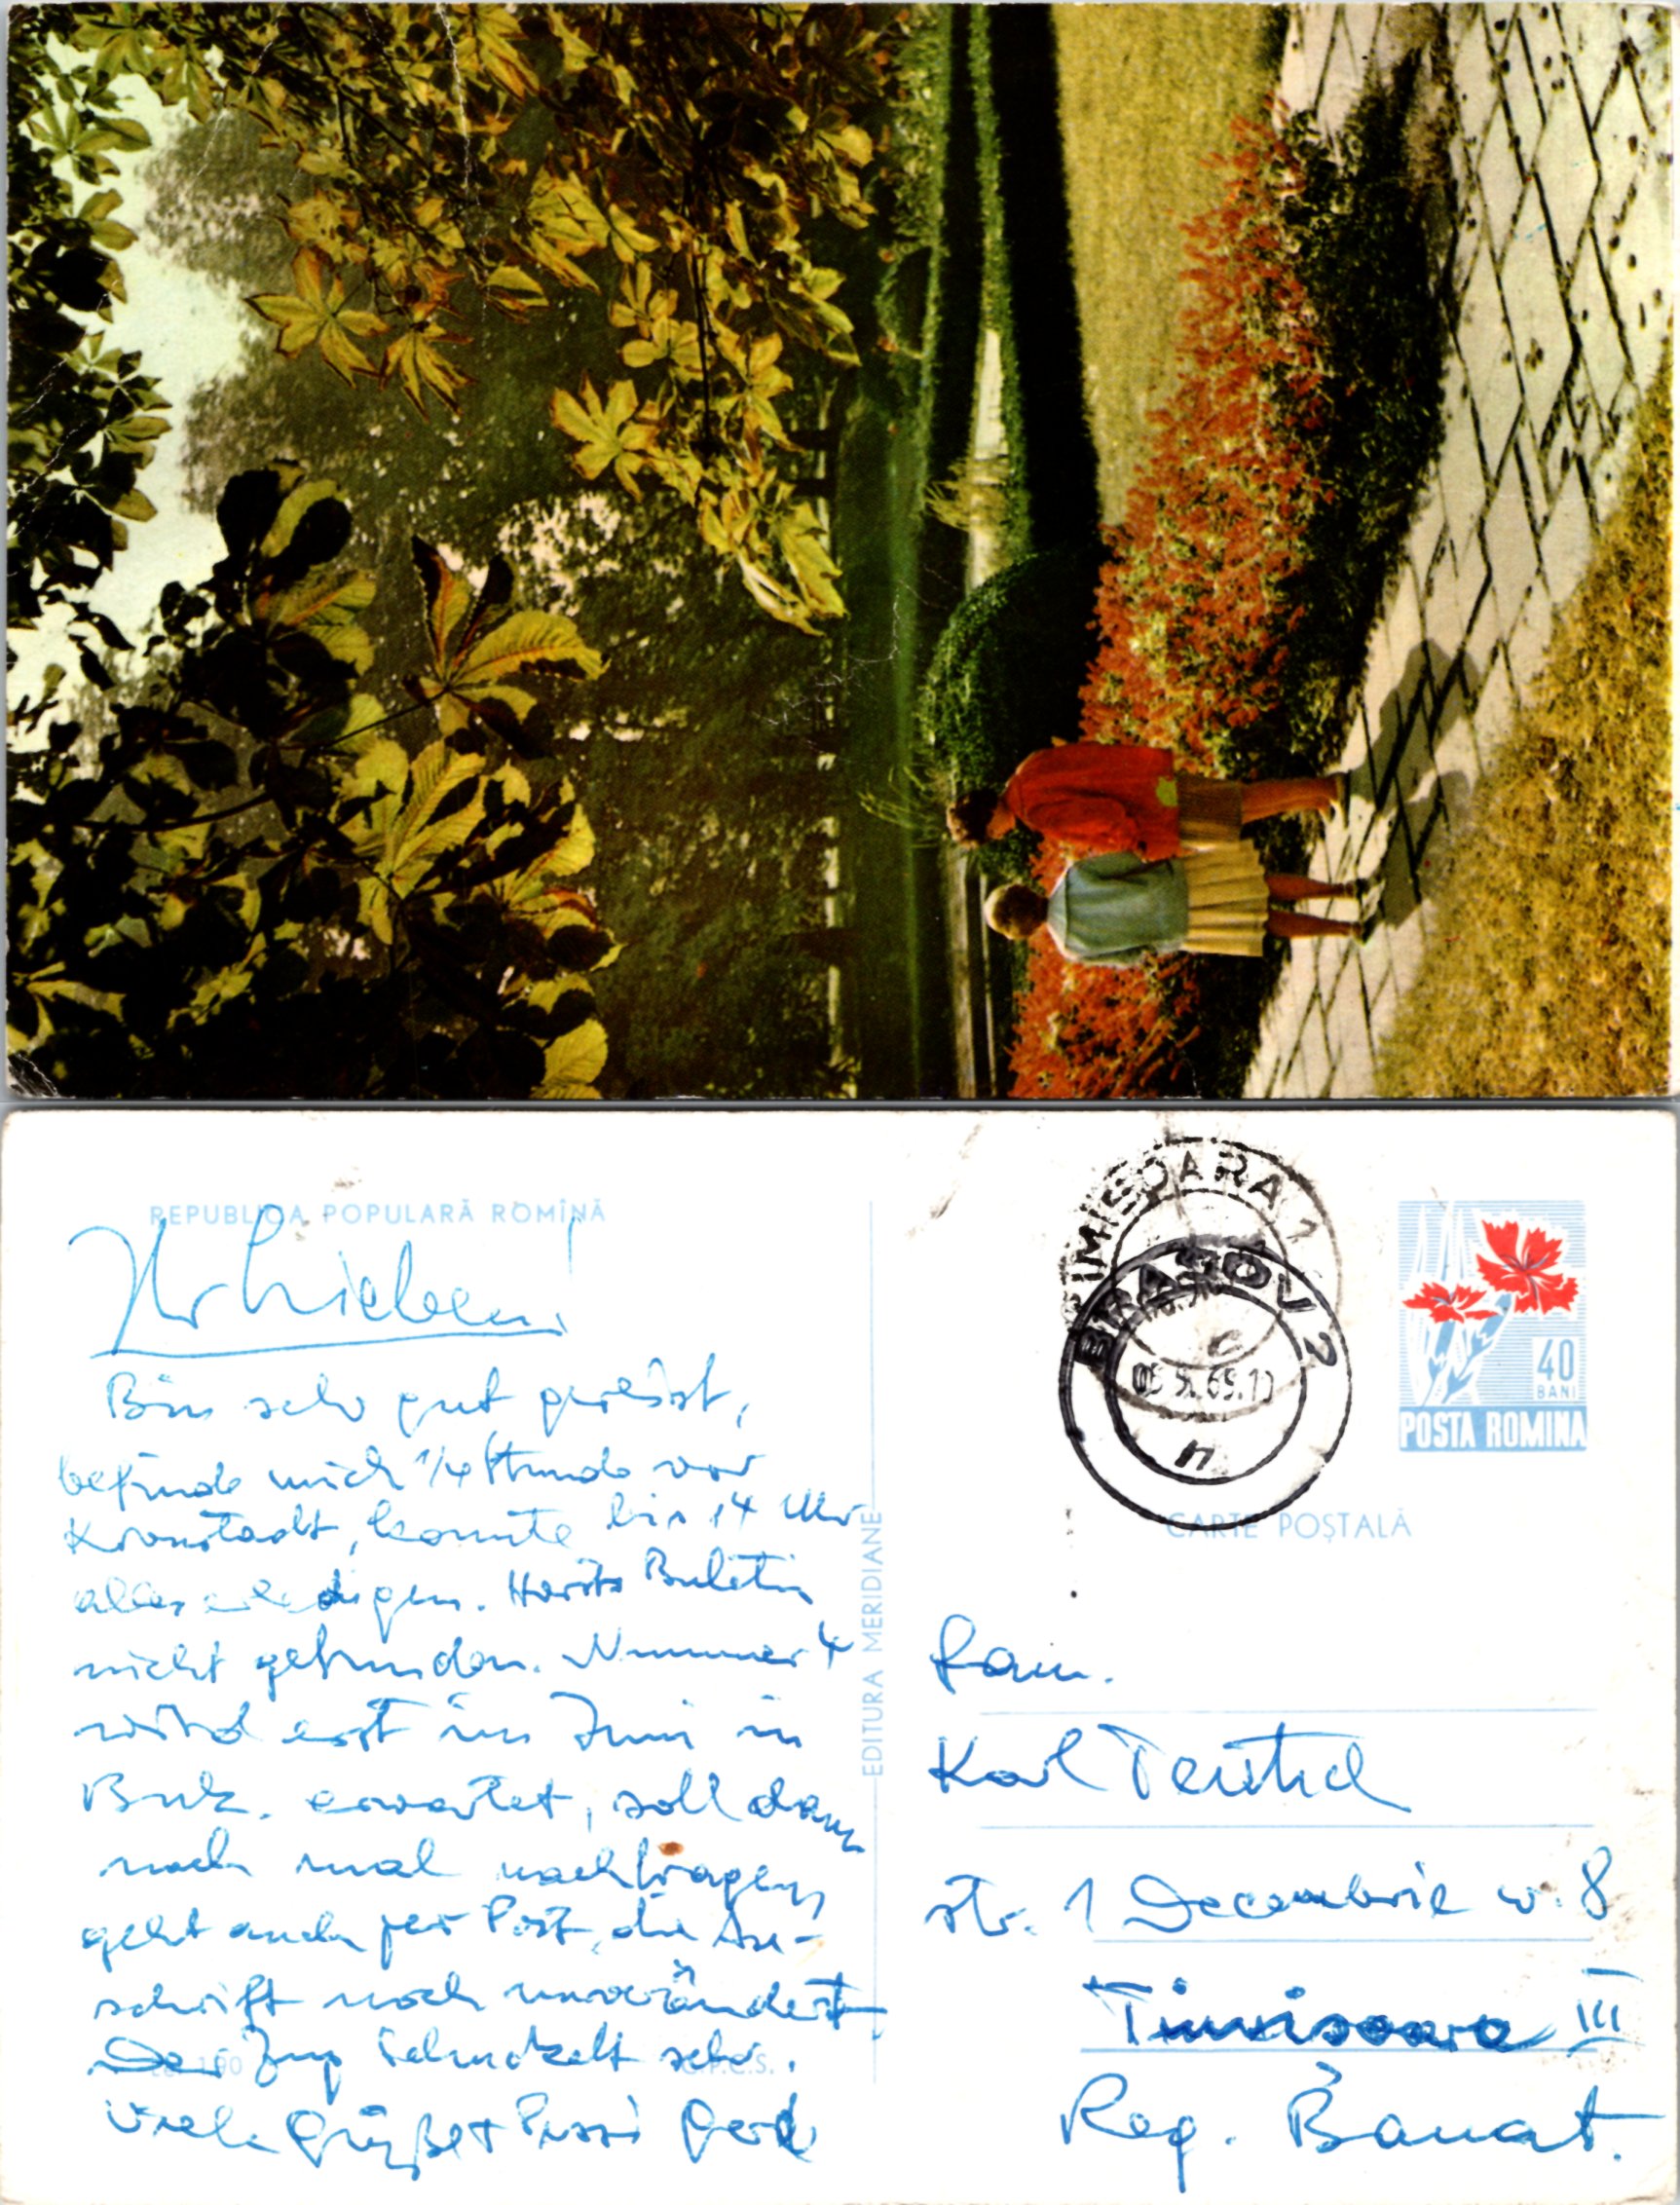 REPUBLICA POPULARĂ ROMÎNĂ
Ihr Lieben!
Bin sehr gut gereist,
befinde mich 1/4 Stunde vor
Kronstadt, konnte bis 14 Uhr
alles erledigen. Buletin
nicht gefunden. Nummer 4
wird erst im Juni in
Buk. erwartet, soll dann
noch mal nachfragen,
geht auch per Post, die An-
schrift noch unverändert
Der Zug schuckelt sehr.
Viele Grüße + Bussi Gerd
EDITURA MERIDIANE
TIMISOARA 1
BRASOV 2
40
BANI
POSTA ROMINA
CARTE POȘTALĂ
Fam.
Karl Teutsch
str. 1 Decembrie nr. 8
Timisoara III
Reg. Banat.